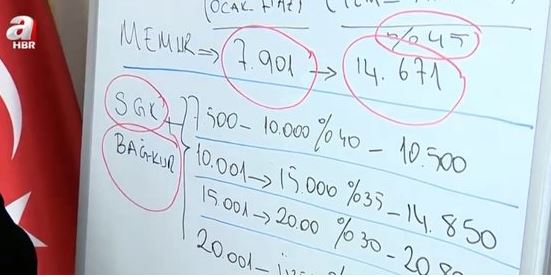 a
HBR
(OCAK
%45
MEMUR ⇒ 7.901 → 14.671
SGK
BAĞ-KUR
7.500 – 10.000 %40 – 10.500
10.001 → 15.000 %35 – 14.850
15.001 → 20.00 %30 – 20.8
20.001 –